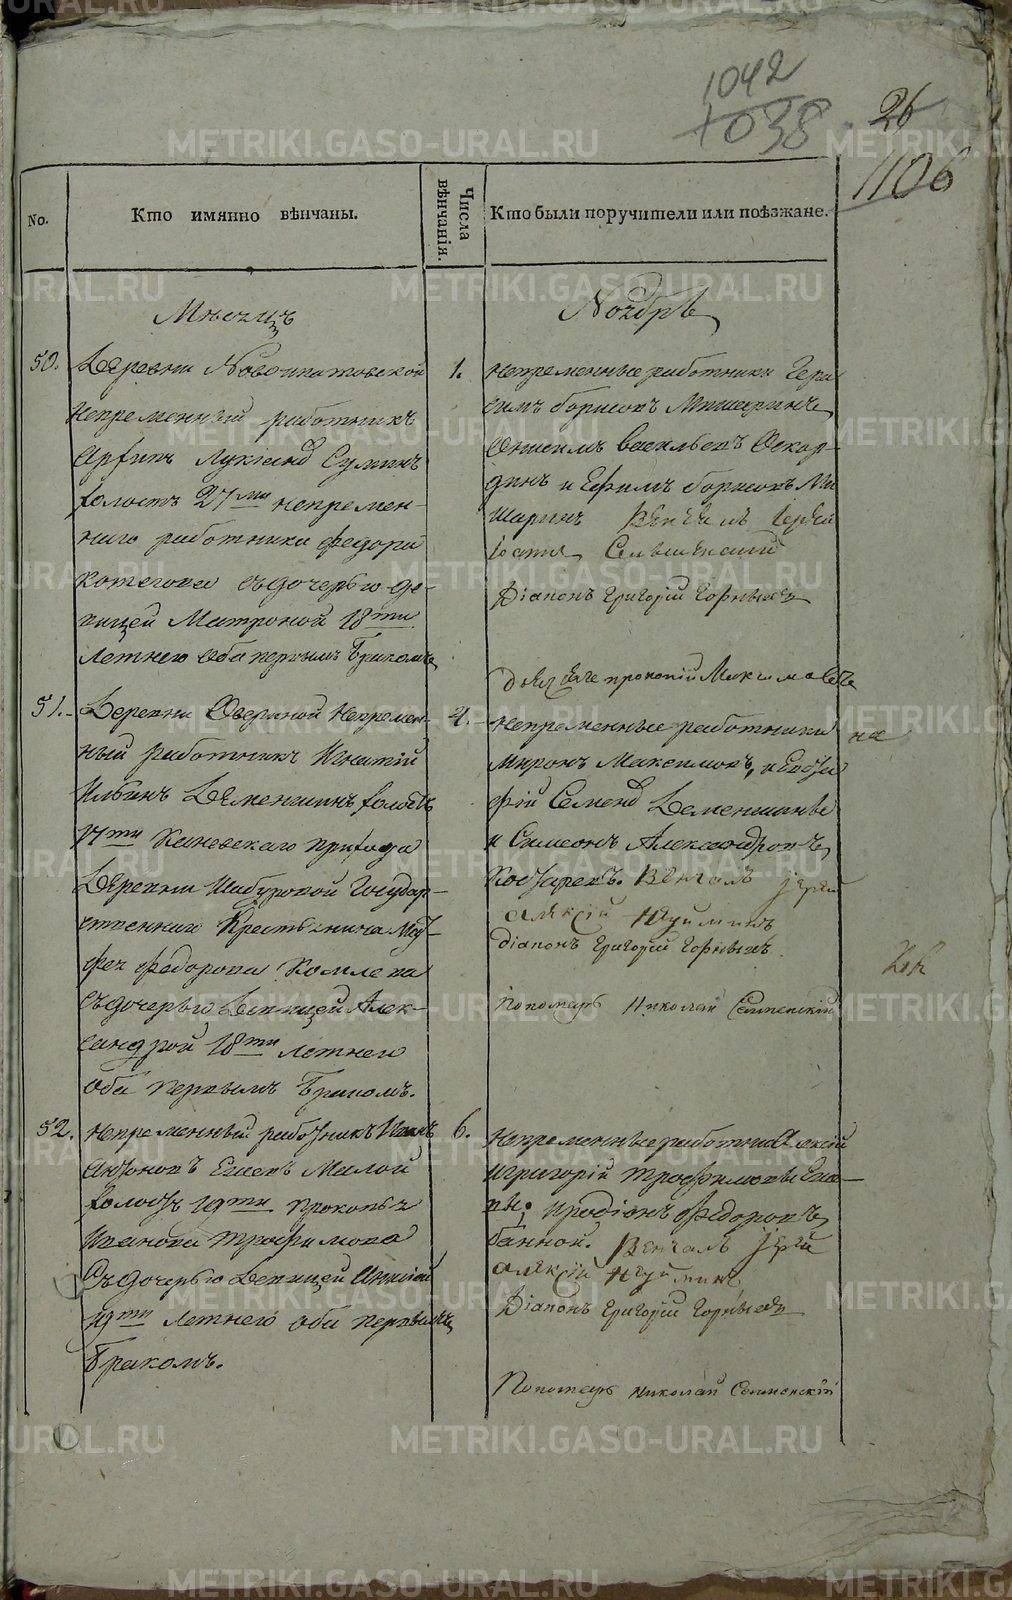 1042
1038
26
1106
No.
Кто имянно вѣнчаны.
Числа вѣнчанія.
Кто были поручители или поѣзжане.
Мѣсяцъ
Ноябрь
50. Деревни Новоипатовской
непременный работникъ
Арфипъ Лукьяновъ Суминъ
холостъ 27ми непремен-
наго работника Федора
Котегова съ дочерью де-
вицей Матроной 18ти
летнею оба первымъ бракомъ
1. непременные работники Гера
симъ Борисовъ Мишаринъ,
Онисимъ Васильевъ Оскор-
динъ и Ефимъ Борисовъ Ми
шаринъ Венчалъ Іерей
Діаконъ Григорій Горныхъ
дьячекъ прокопій Максимовъ
51. Деревни Оверяной Непремен-
ный работникъ Игнатій
Ильинъ Деменшинъ холостъ
17ти Каневскаго прихода
Деревни Шабуровой Государ-
ственнаго Крестьянина
Федорова Комлева
съ дочерью Девицей Алек-
сандрой 18ти летней
оба первымъ бракомъ.
4. непременные работники
Миронъ Максимовъ, и
фій Семеновъ Деменшины
и Симеонъ Александровъ
Косаревъ. Венчалъ Іерей
Алексій Наумминъ
діаконъ Григорій Горныхъ.
Пономарь Николай Селменскій
52. непременный работникъ Иванъ
Антоновъ Малой
холостъ 19ти Прокопья
Иванова Трофимова
съ дочерью Девицей
19ти летнею оба первымъ
бракомъ.
6. Непременные работники Алексій
и Григорій Трофимовы
и Родіонъ Федоровъ
Банной. Венчалъ Іерей
Алексій Наумминъ
Діаконъ Григорій Горныхъ
Пономарь Николай Селменскій
METRIKI.GASO-URAL.RU